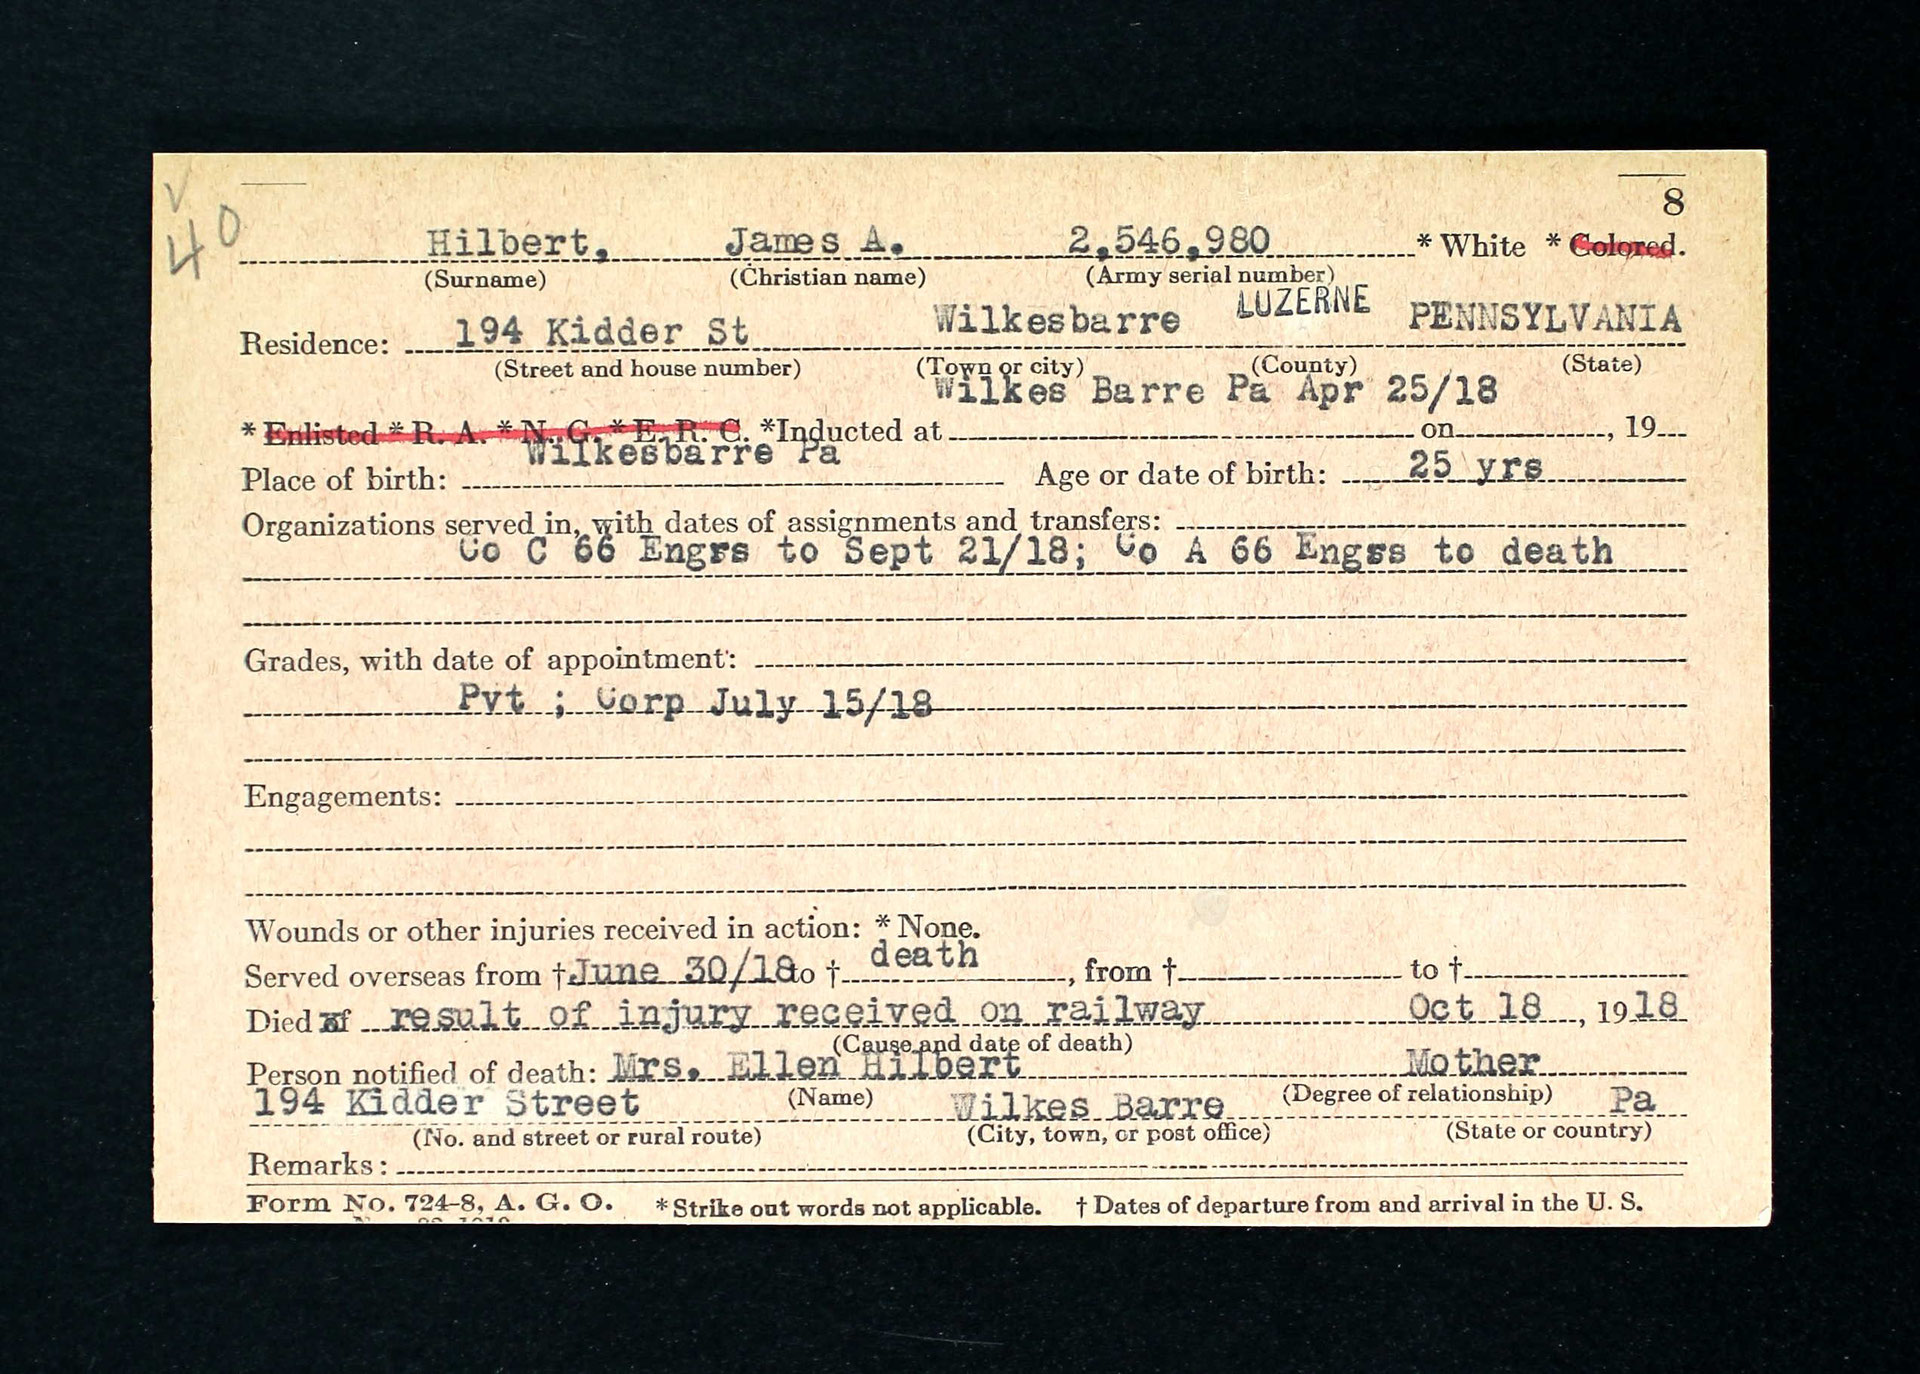 8
40
Hilbert, James A. 2,546,980 * White * Colored.
(Surname) (Christian name) (Army serial number)
Residence: 194 Kidder St Wilkesbarre LUZERNE PENNSYLVANIA
(Street and house number) (Town or city) (County) (State)
Wilkes Barre Pa Apr 25/18
* Enlisted * R. A. * N. G. * E. R. C. *Inducted at on , 19
Wilkesbarre Pa
Place of birth: Age or date of birth: 25 yrs
Organizations served in, with dates of assignments and transfers:
Co C 66 Engrs to Sept 21/18; Co A 66 Engrs to death
Grades, with date of appointment:
Pvt ; Corp July 15/18
Engagements:
Wounds or other injuries received in action: * None.
Served overseas from † June 30/18 to † death , from † to †
Died of result of injury received on railway Oct 18 , 19 18
(Cause and date of death)
Person notified of death: Mrs. Ellen Hilbert Mother
(Name) (Degree of relationship)
194 Kidder Street Wilkes Barre Pa
(No. and street or rural route) (City, town, or post office) (State or country)
Remarks:
Form No. 724-8, A. G. O. * Strike out words not applicable. † Dates of departure from and arrival in the U. S.